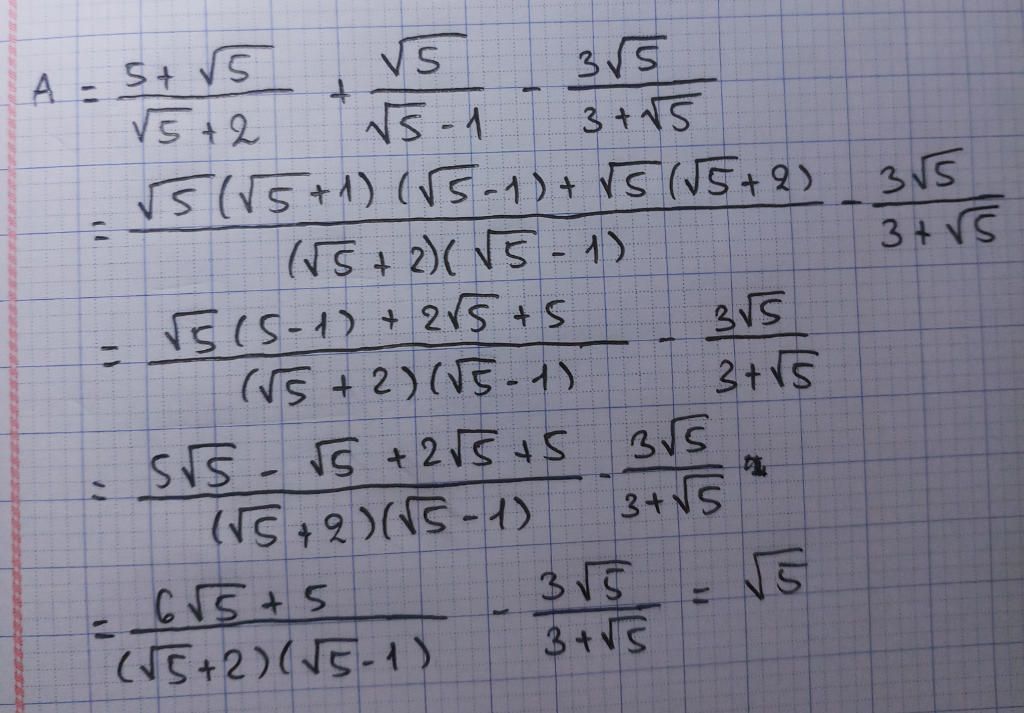 A = (5 + √5)/(√5 + 2) + √5/(√5 - 1) - 3√5/(3 + √5)
= (√5(√5 + 1)(√5 - 1) + √5(√5 + 2))/((√5 + 2)(√5 - 1)) - 3√5/(3 + √5)
= (√5(5 - 1) + 2√5 + 5)/((√5 + 2)(√5 - 1)) - 3√5/(3 + √5)
= (5√5 - √5 + 2√5 + 5)/((√5 + 2)(√5 - 1)) - 3√5/(3 + √5)
= (6√5 + 5)/((√5 + 2)(√5 - 1)) - 3√5/(3 + √5) = √5